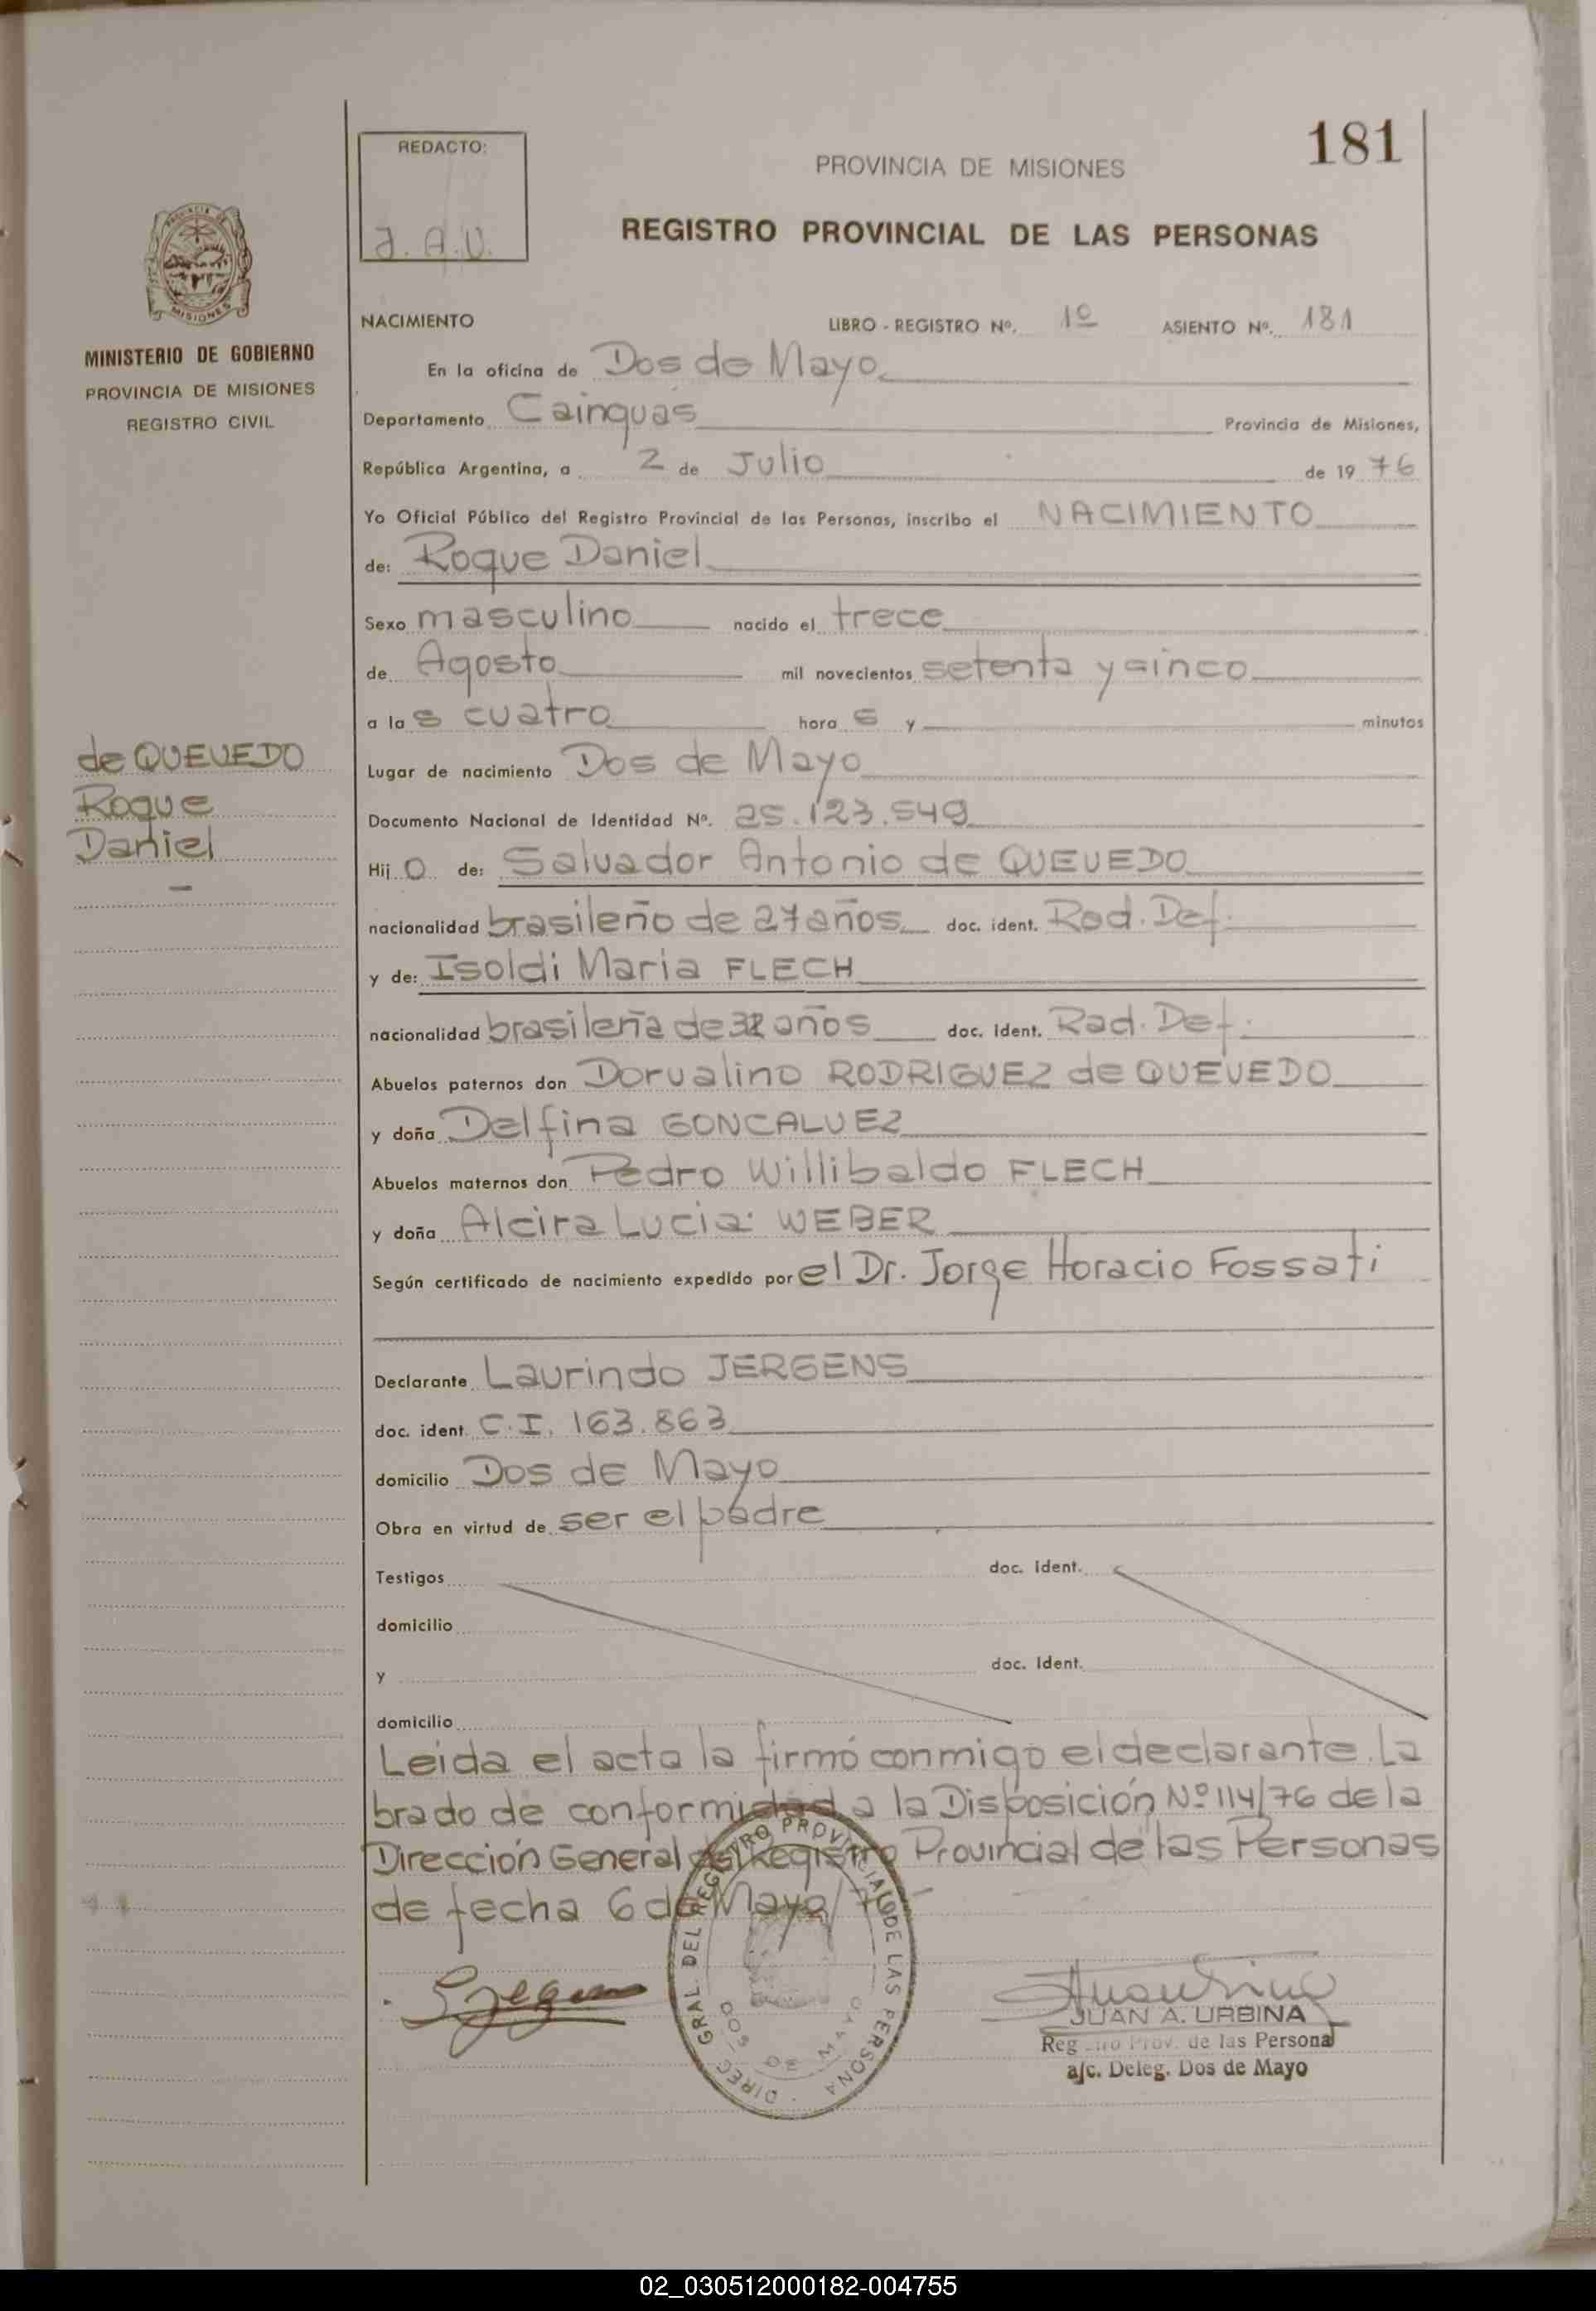 181
REDACTO:
J. A. U.
PROVINCIA DE MISIONES
REGISTRO PROVINCIAL DE LAS PERSONAS
MISIONES
MINISTERIO DE GOBIERNO
PROVINCIA DE MISIONES
REGISTRO CIVIL
de QUEVEDO
Roque
Daniel
NACIMIENTO LIBRO - REGISTRO Nº. 1º ASIENTO Nº. 181
En la oficina de Dos de Mayo
Departamento Cainguas Provincia de Misiones,
República Argentina, a 2 de Julio de 19 76
Yo Oficial Público del Registro Provincial de las Personas, inscribo el NACIMIENTO
de: Roque Daniel
Sexo masculino nacido el trece
de Agosto mil novecientos setenta y cinco
a la s cuatro hora s y minutos
Lugar de nacimiento Dos de Mayo
Documento Nacional de Identidad Nº. 25.123.549
Hij o de: Salvador Antonio de QUEVEDO
nacionalidad brasileño de 27 años doc. ident. Rad. Def.
y de: Isoldi Maria FLECH
nacionalidad brasileña de años doc. ident. Rad. Def.
Abuelos paternos don Dorvalino RODRIGUEZ de QUEVEDO
y doña Delfina GONCALVEZ
Abuelos maternos don Pedro Willibaldo FLECH
y doña Alcira Lucia WEBER
Según certificado de nacimiento expedido por el Dr. Jorge Horacio Fossati
Declarante Laurindo JERGENS
doc. ident. C.I. 163.863
domicilio Dos de Mayo
Obra en virtud de ser el padre
Testigos doc. ident.
domicilio
y doc. ident.
domicilio
Leida el acta la firmó conmigo el declarante. La
brado de conformidad a la Disposición Nº 114/76 de la
Dirección General del Registro Provincial de las Personas
de fecha 6 de Mayo/76
DIREC. GRAL. DEL REGISTRO PROVINCIAL DE LAS PERSONA
DOS DE MAYO
JUAN A. URBINA
Prov. de las Persona
a/c. Deleg. Dos de Mayo
02_030512000182-004755